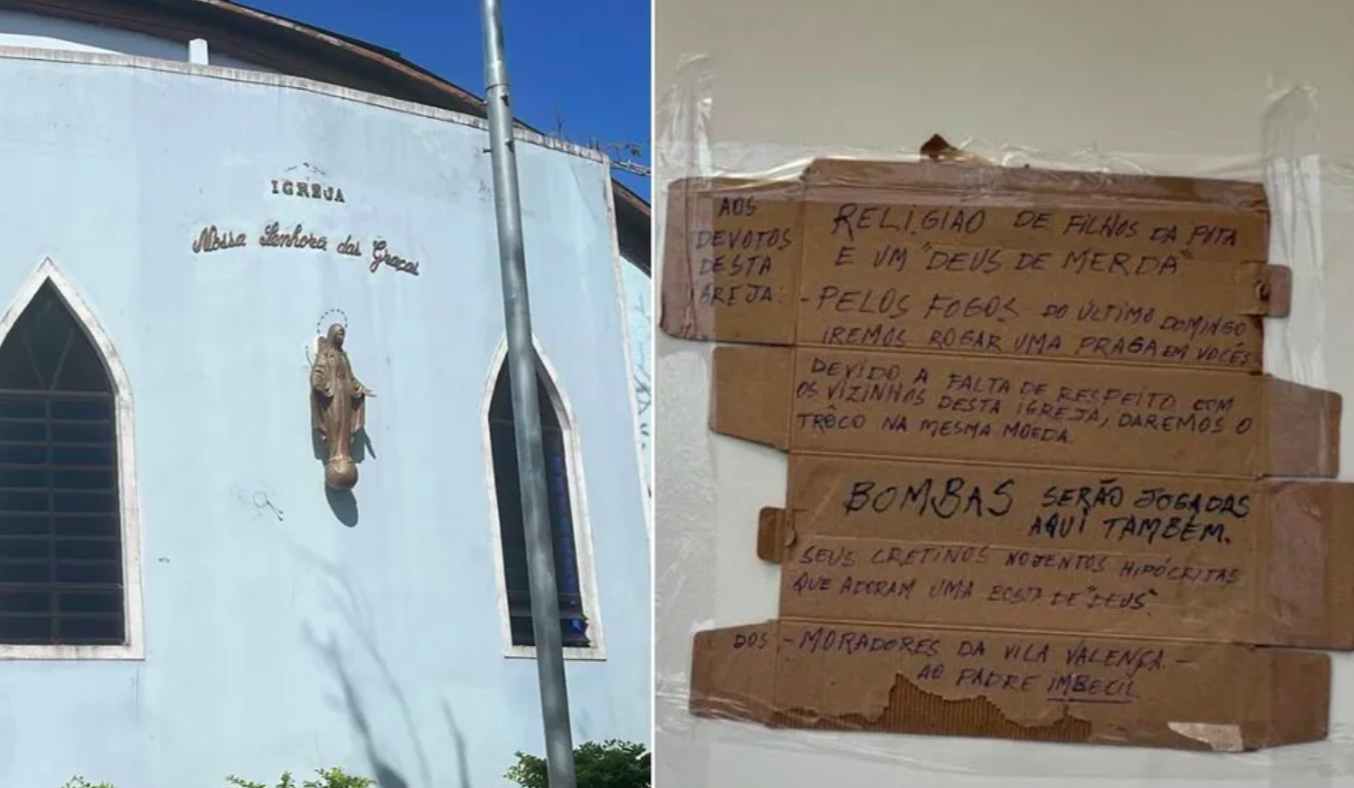 IGREJA
Nossa Senhora das Graças
AOS
DEVOTOS
DESTA
IGREJA:
RELIGIÃO DE FILHOS DA PUTA
E UM "DEUS DE MERDA"
- PELOS FOGOS DO ÚLTIMO DOMINGO
IREMOS ROGAR UMA PRAGA EM VOCÊS
DEVIDO A FALTA DE RESPEITO COM
OS VIZINHOS DESTA IGREJA, DAREMOS O
TRÔCO NA MESMA MOEDA.
BOMBAS SERÃO JOGADAS
AQUI TAMBÉM.
SEUS CRETINOS NOJENTOS HIPÓCRITAS
QUE ADORAM UMA BOSTA DE "DEUS".
DOS - MORADORES DA VILA VALENÇA -
AO PADRE IMBECIL